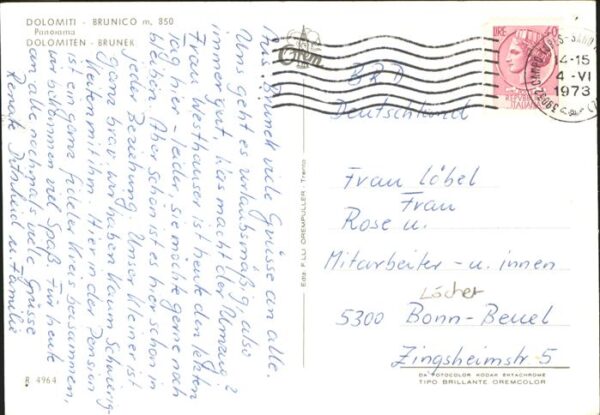 DOLOMITI - BRUNICO m. 850
Panorama
DOLOMITEN - BRUNEK
Aus Bruneck viele Grüsse an alle.
Uns geht es urlaubsmäßig, also
immer gut, was macht der Umzug?
Frau Westhauser ist heute den letzten
Tag hier - leider sie möchte gerne noch
bleiben. Aber schön ist es hier schon in
jeder Beziehung. Unser Kleiner ist
ganz brav, wir haben kaum Schwierig-
keiten mit ihm. Hier in der Pension
ist ein ganz fideler Kreis beisammen,
wir bekommen viel Spaß. Für heute
an alle nochmals viele Grüsse
Renate u. Familie
R 4964
Ediz. F.LLI OREMPULLER - Trento
Orem
LIRE 40
REPUBBLICA
ITALIANA
39032
14-15
4-VI
1973
BRD
Deutschland
Frau Löbel
Frau
Rose u.
Mitarbeiter - u. innen
Löcher
5300 Bonn-Beuel
Zingsheimstr 5
DA FOTOCOLOR KODAK EKTACHROME
TIPO BRILLANTE OREMCOLOR